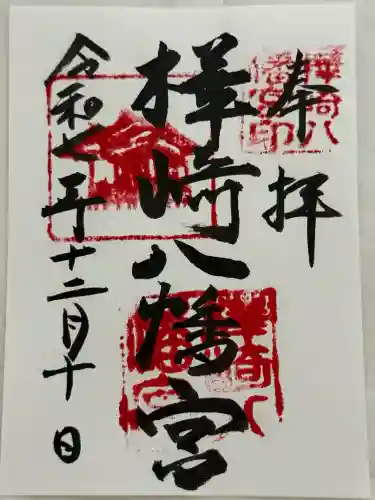 奉拝
樺崎八幡宮
令和七年十二月十日
樺崎八幡宮印